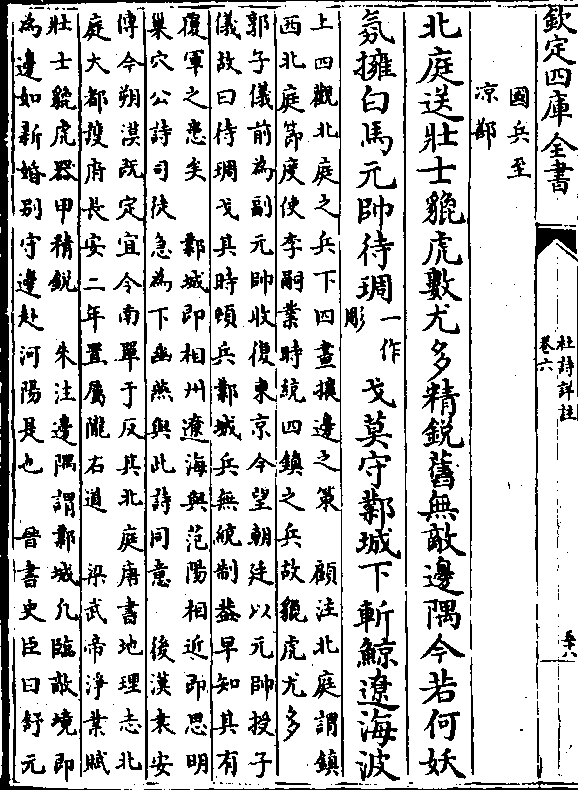 欽定四庫全書
杜詩詳註
卷六
國兵至
凉鄴
北庭送壯士貔虎數尤多精銳舊無敵邊隅今若何妖
氛擁白馬元帥待琱一作彫戈莫守鄴城下斬鯨遼海波
上四觀北庭之兵下四畫攘邊之策 顧注北庭謂鎮
西北庭節度使李嗣業時統四鎮之兵故貔虎尤多
郭子儀前為副元帥收復東京今望朝廷以元帥授子
儀故曰待琱戈其時頓兵鄴城兵無統制葢早知其有
覆軍之患矣 鄴城即相州遼海與范陽相近即思明
巢穴公詩司徒急為下幽燕與此詩同意 後漢袁安
傳今朔漠既定宜令南單于反其北庭唐書地理志北
庭大都護府長安二年置屬隴右道 梁武帝淨業賦
壯士貔虎器甲精銳 朱注邊隅謂鄴城凡臨敵境即
為邊如新婚別守邊赴河陽是也 晉書史臣曰舒元